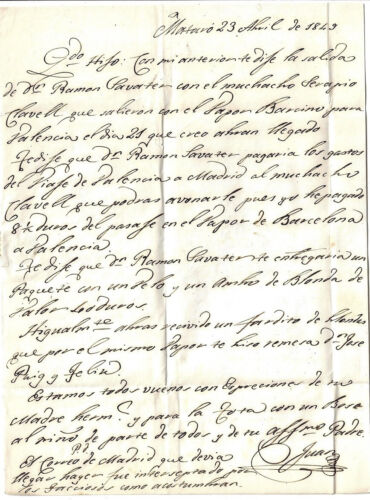 Mataró 23 Abril de 1849
Qdo Hijo: Con mi anterior te dije la salida
de Dn Ramon Savater con el muchacho Serapio
Clavell que salieron con el Papor Barcino para
Valencia el dia 28 que creo abran llegado
Te dije que Dn Ramon Savater pagaria los gastos
del Viaje de Valencia a Madrid al muchacho
Clavell que podras avonarle pues yo he pagado
8 duros del pasaje en el Papor de Barcelona
a Valencia.
Te dije que Dn Ramon Savater te entregaria un
Paquete con un Velo y un Ancho de Blonda de
Valor duros.
Higualmte abras recivido un fardito de
que por el mismo Papor te hiso remesa Dn Jose
Puig y Feliu
Estamos todos vuenos con Expreciones de tu
Madre herms y para la Tota con un Beso
al niño de parte de todos y de tu affmo Padre
Juan
P.D.
El Correo de Madrid que devia
llegar hayer fue interseptado por
los facciosos como acostumbran.